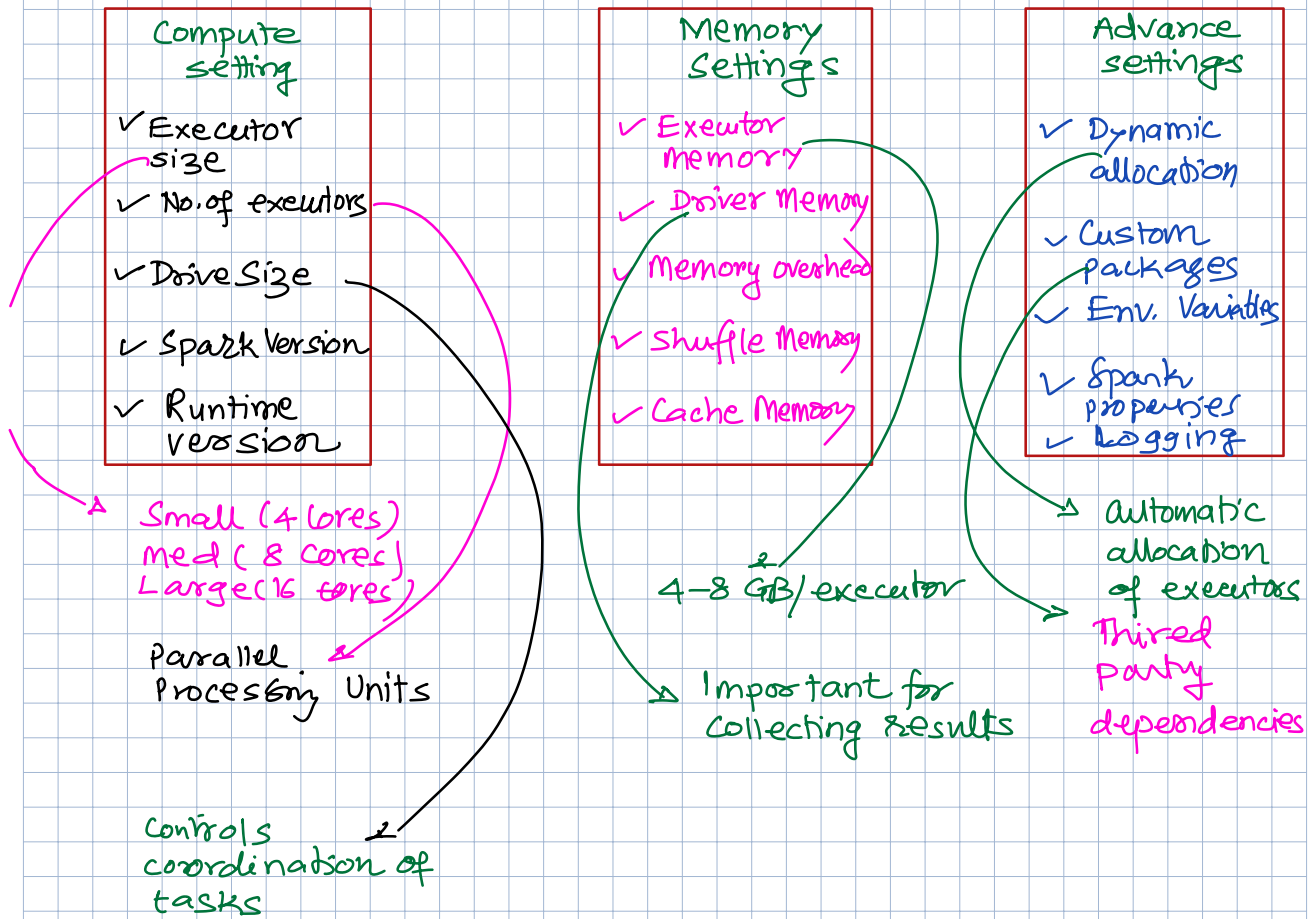 Compute
setting
✓ Executor
size
✓ No. of executors
✓ Drive Size
✓ Spark Version
✓ Runtime
version
Small (4 Cores)
med ( 8 Cores)
Large (16 cores)
Parallel
Processing Units
Controls
coordination of
tasks
Memory
Settings
✓ Executor
memory
✓ Driver Memory
✓ Memory overhead
✓ Shuffle Memory
✓ Cache Memory
4-8 GB/executor
Important for
Collecting results
Advance
settings
✓ Dynamic
allocation
✓ Custom
packages
✓ Env. Variables
✓ Spark
properties
✓ Logging
Automatic
allocation
of executors
Thired
party
dependencies